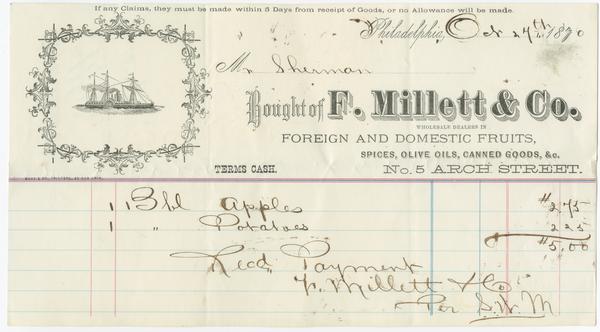 If any Claims, they must be made within 5 Days from receipt of Goods, or no Allowance will be made.
Philadelphia, Oct 27th 1870
Mr Sherman
Bought of F. Millett & Co.
WHOLESALE DEALERS IN
FOREIGN AND DOMESTIC FRUITS,
SPICES, OLIVE OILS, CANNED GOODS, &c.
TERMS CASH. No. 5 ARCH STREET.
1 1 Bbl Apples $2.75
1 " Potatoes 2.25
$5.00
Recd Payment
F. Millett & Co
Per S.W.M